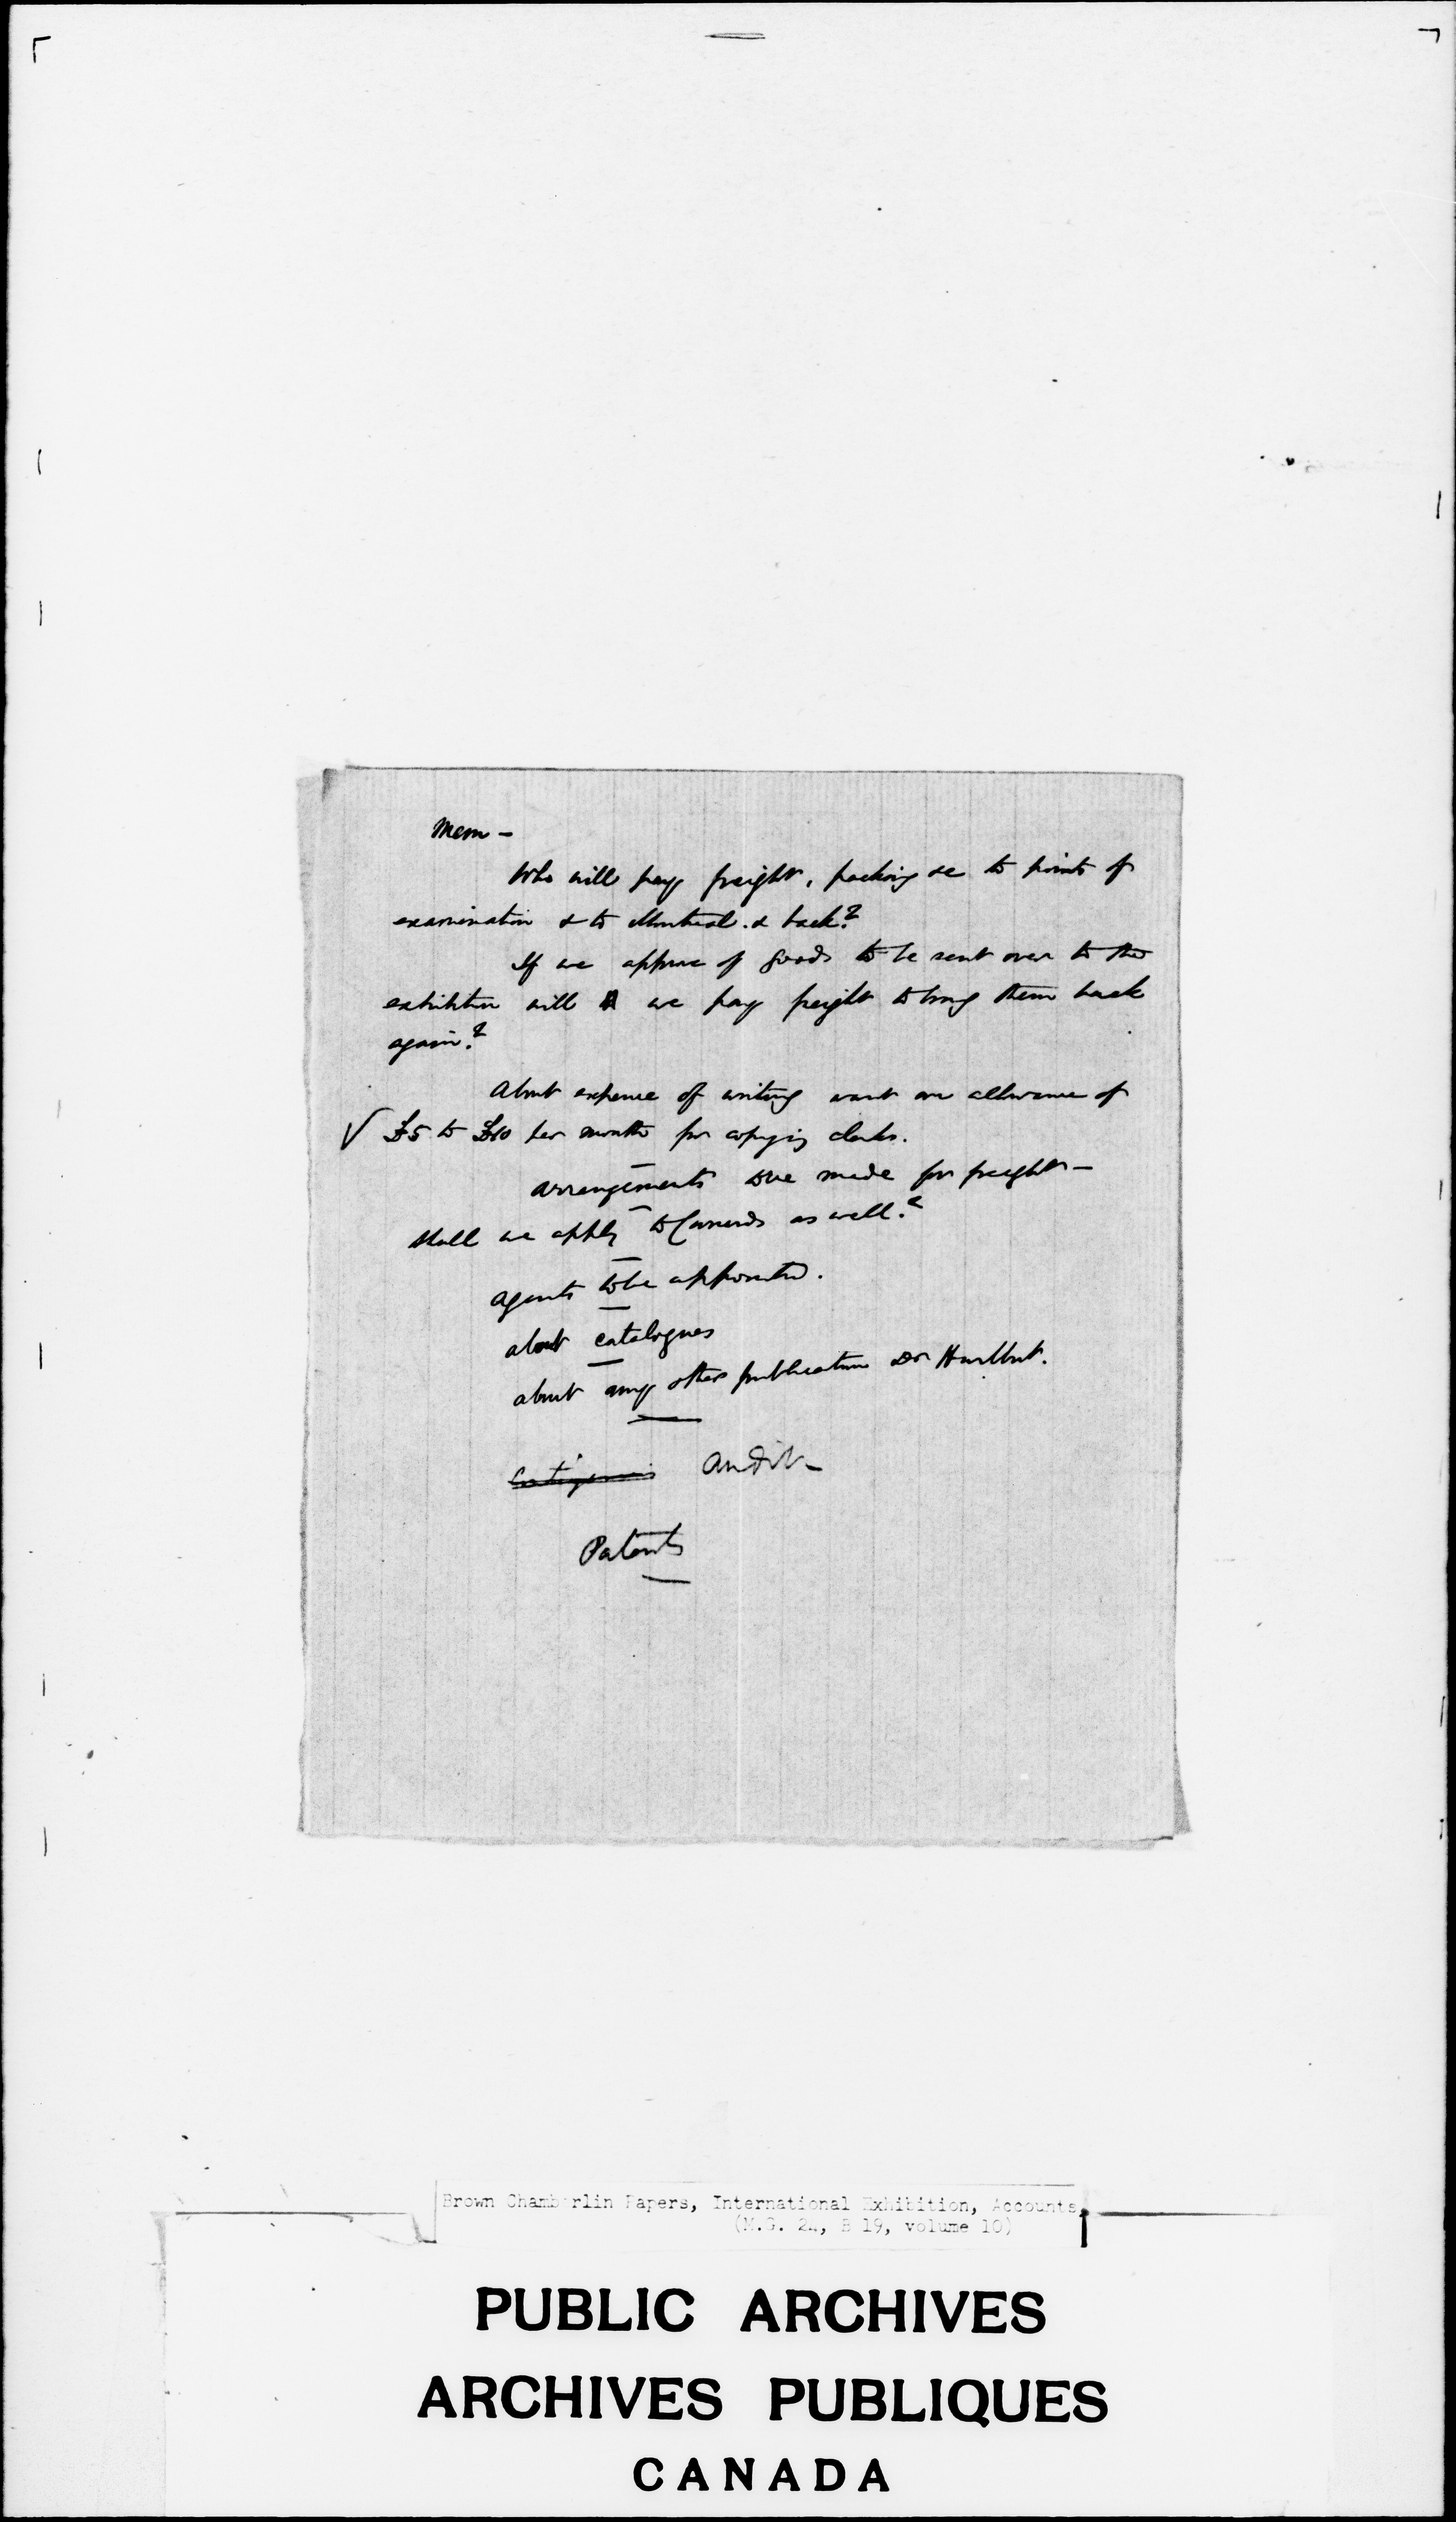 Mem -
Who will pay freight, packing &c to points of
examination & to Montreal. & back?
If we approve of goods to be sent over to the
exhibition will we pay freight to bring them back
again?
About expense of writing want an allowance of
√ £5 to £10 per month for copying clerks.
Arrangements to be made for freight -
Shall we apply to Cunards as well?
Agents to be appointed.
about catalogues
about any other publication Dr Hurlburt.
Contingencies Audit -
Patents
Brown Chamberlin Papers, International Exhibition, Accounts,
(M.G. 24, B 19, volume 10)
PUBLIC ARCHIVES
ARCHIVES PUBLIQUES
CANADA